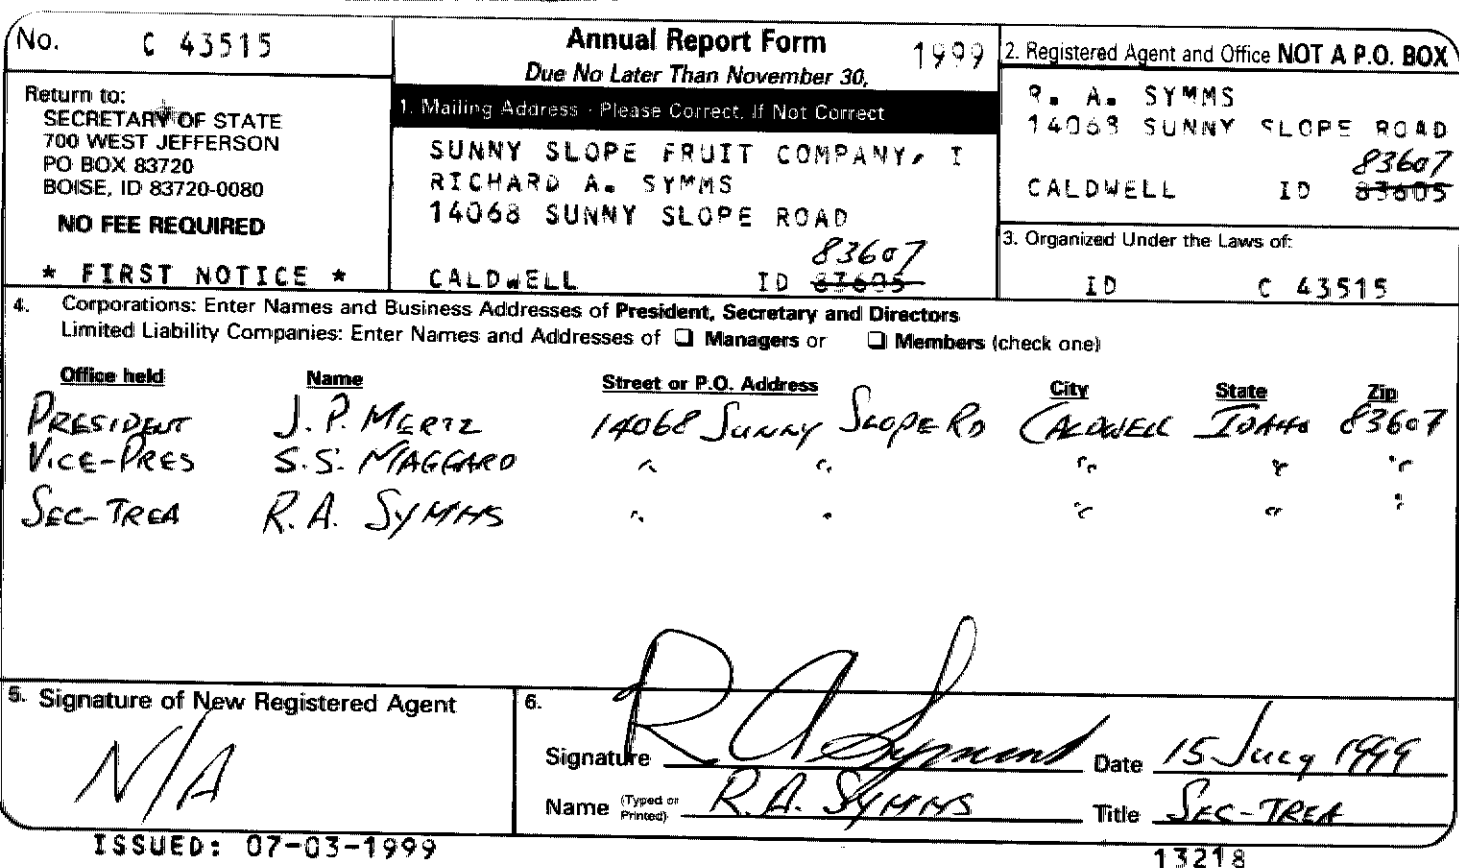 No. C 43515
Return to:
SECRETARY OF STATE
700 WEST JEFFERSON
PO BOX 83720
BOISE, ID 83720-0080
NO FEE REQUIRED
* FIRST NOTICE *
Annual Report Form 1999
Due No Later Than November 30,
1. Mailing Address - Please Correct, If Not Correct
SUNNY SLOPE FRUIT COMPANY, I
RICHARD A. SYMMS
14068 SUNNY SLOPE ROAD
83607
CALDWELL ID 83605
2. Registered Agent and Office NOT A P.O. BOX
R. A. SYMMS
14068 SUNNY SLOPE ROAD
83607
CALDWELL ID 83605
3. Organized Under the Laws of:
ID C 43515
4. Corporations: Enter Names and Business Addresses of President, Secretary and Directors
Limited Liability Companies: Enter Names and Addresses of ❑ Managers or ❑ Members (check one)
Office held Name Street or P.O. Address City State Zip
PRESIDENT J. P. MERTZ 14068 SUNNY SLOPE RD CALDWELL IDAHO 83607
VICE-PRES S.S. MAGGARD " " " " "
SEC-TREA R.A. SYMMS " " " " "
5. Signature of New Registered Agent
N/A
6.
Signature R A Symms Date 15 July 1999
Name (Typed or Printed) R.A. SYMMS Title SEC-TREA
ISSUED: 07-03-1999
13218